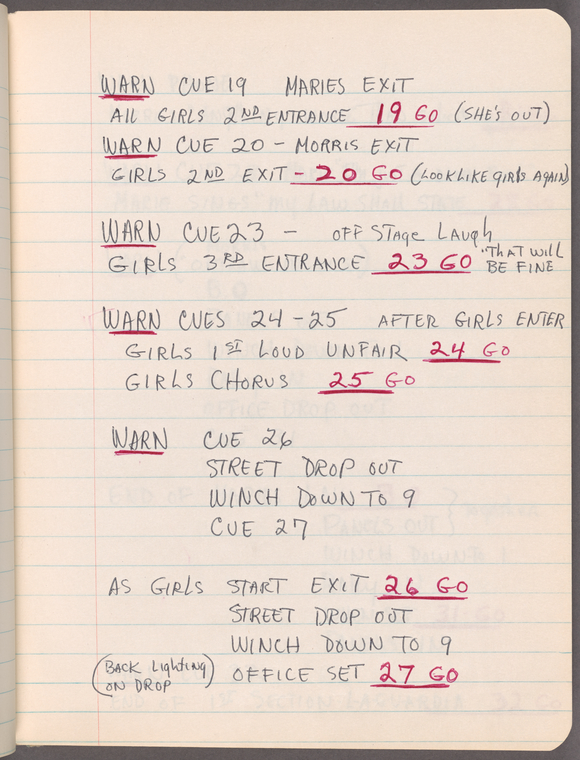 WARN CUE 19 MARIES EXIT
All GIRLS 2ND ENTRANCE 19 GO (SHE'S OUT)
WARN CUE 20 - MORRIS EXIT
GIRLS 2ND EXIT - 20 GO (LOOK LIKE GIRLS AGAIN)
WARN CUE 23 - OFF STAGE LAUGH
GIRLS 3RD ENTRANCE 23 GO "THAT WILL
BE FINE
WARN CUES 24-25 AFTER GIRLS ENTER
GIRLS 1ST LOUD UNFAIR 24 GO
GIRLS CHORUS 25 GO
WARN CUE 26
STREET DROP OUT
WINCH DOWN TO 9
CUE 27
AS GIRLS START EXIT 26 GO
STREET DROP OUT
WINCH DOWN TO 9
(BACK LIGHTING ON DROP) OFFICE SET 27 GO